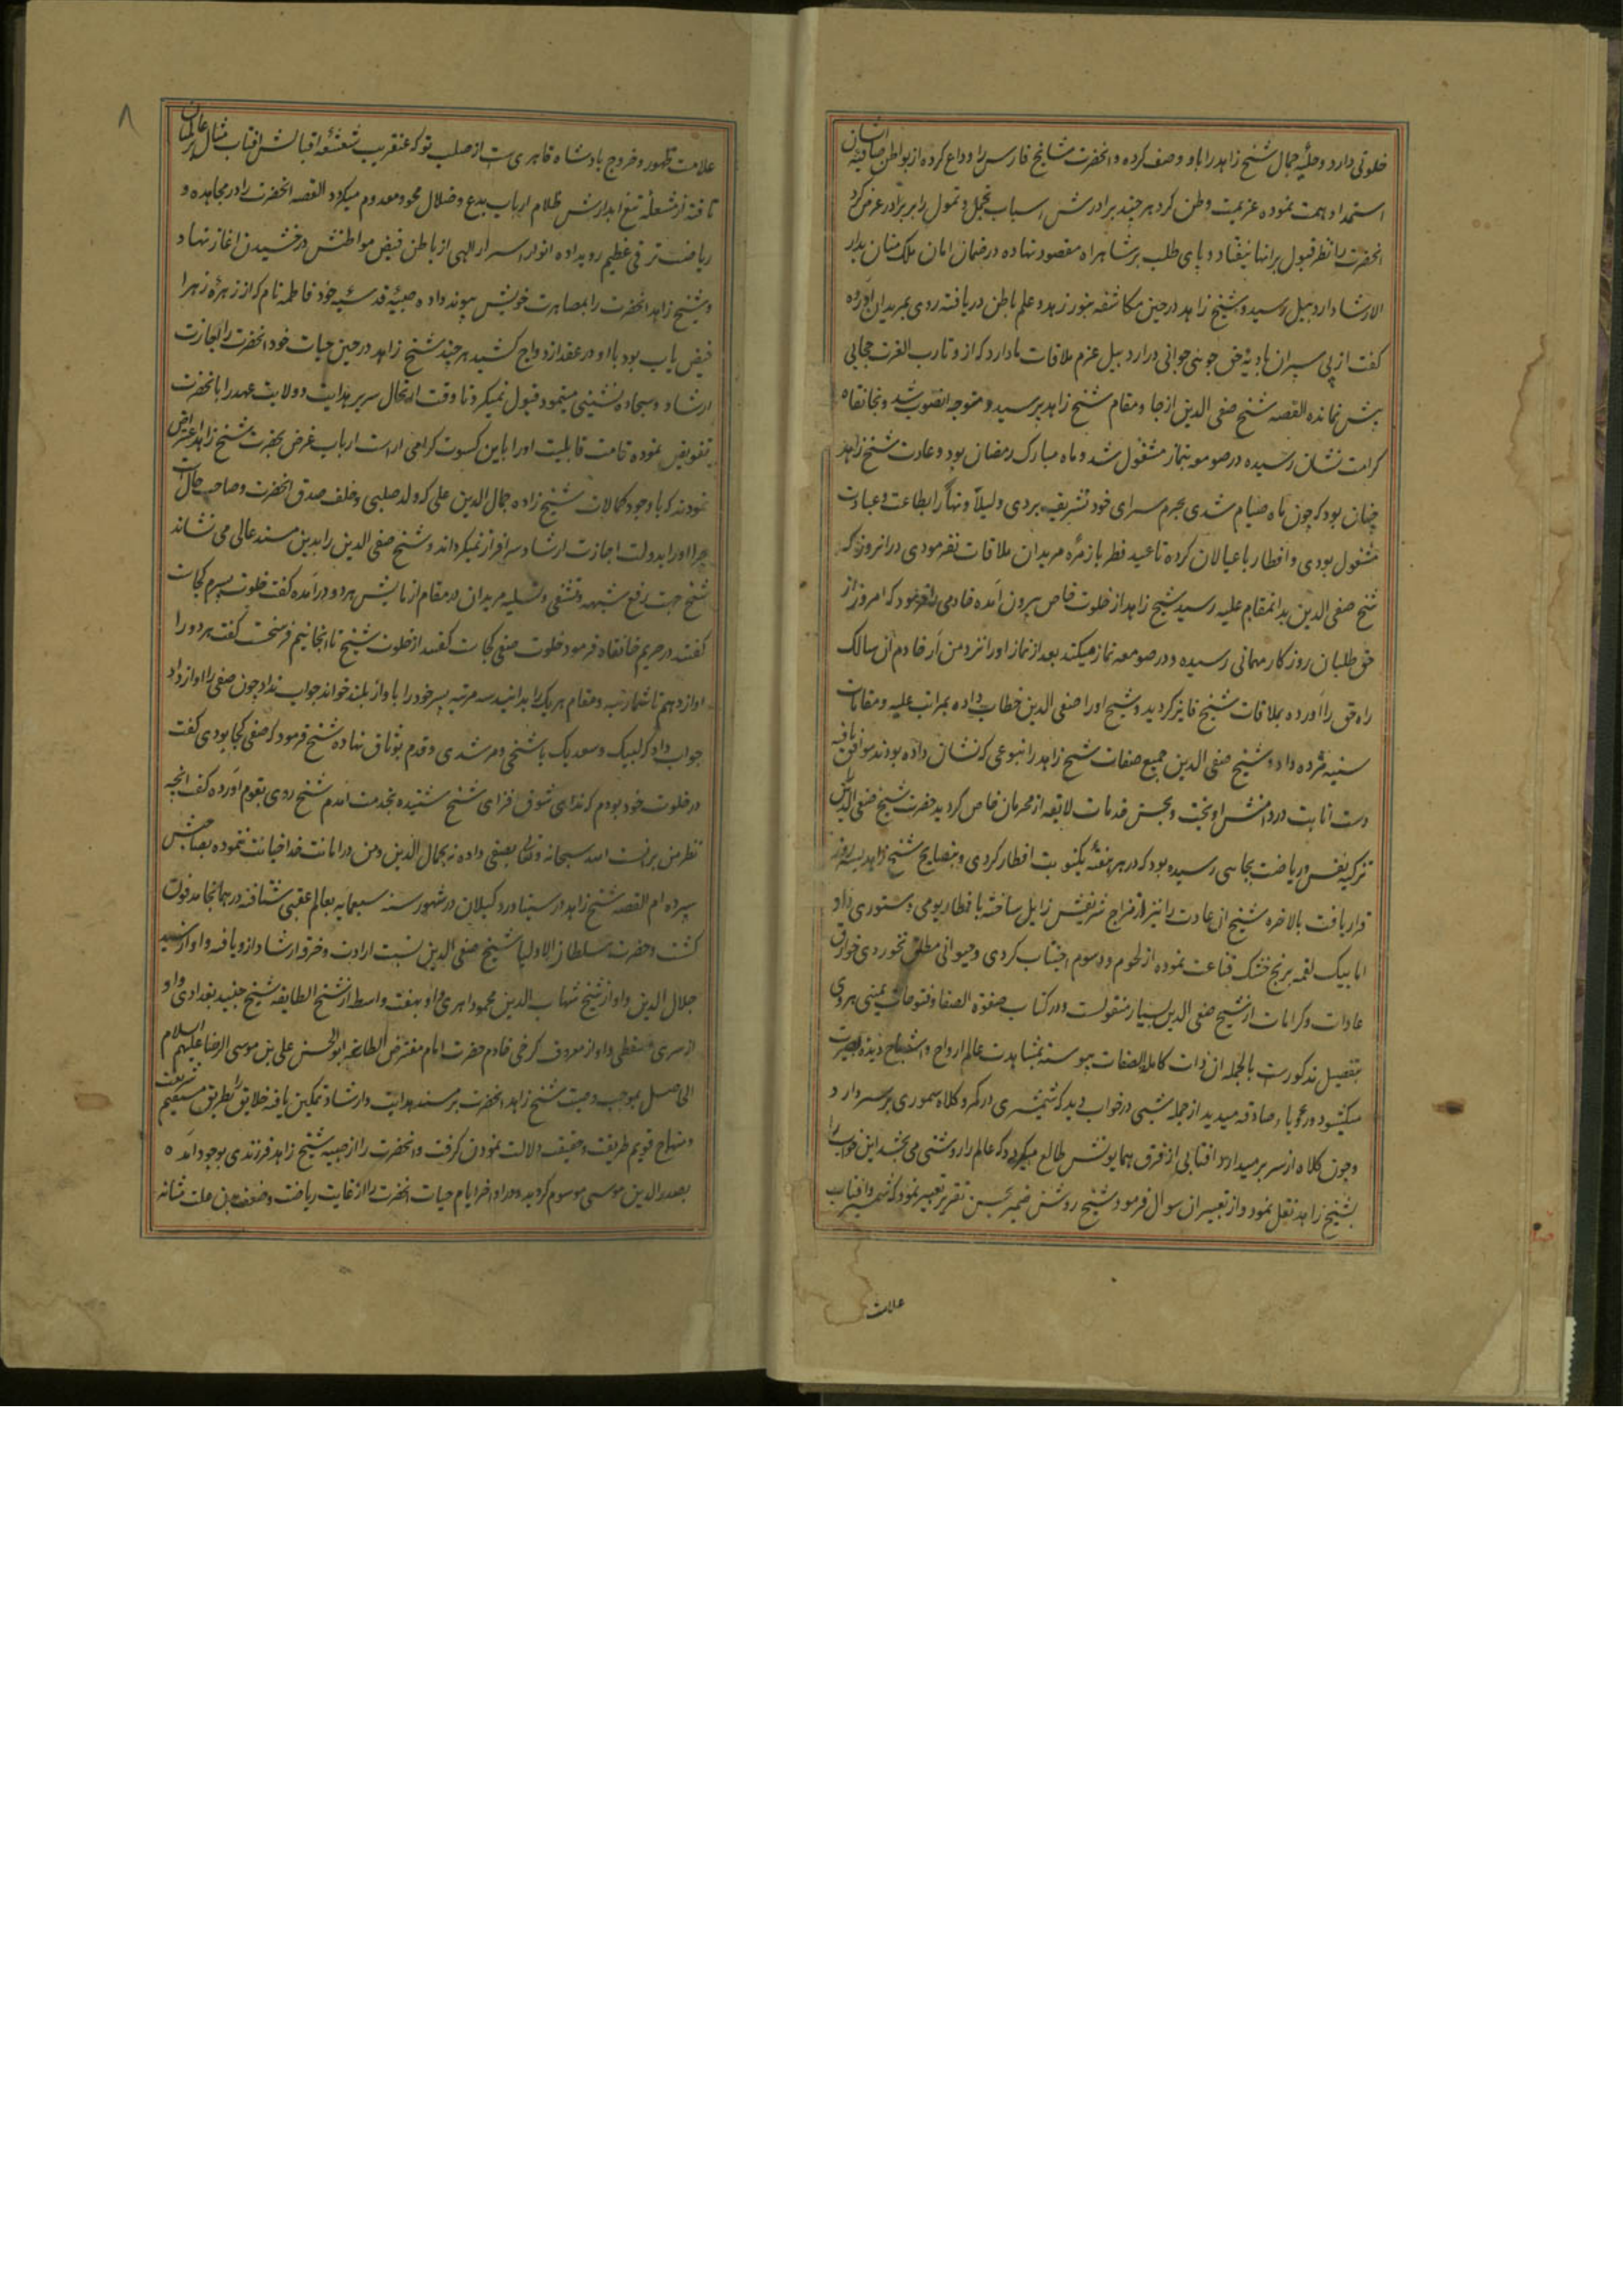 خلوتی دارد و حلیهٔ جمال شیخ زاهد را باو وصف کرده و انحضرت مشایخ فارس را وداع کرده از بواطن صافیهٔ ایشان
استمداد همت نموده عزیمت وطن کرد هر چند برادرش اسباب تجمل و تمول را بر برادر عرض کرد
انحضرت را نظر قبول بر انها نیفتاد و پای طلب بر شاهراه مقصود نهاده در ضمان امان ملک منان بدار
الارشاد اردبیل رسید و شیخ زاهد در حین مکاشفه بنور زهد و علم باطن دریافته روی بمریدان اورده
کفت از پی سپران بادیهٔ حق جویی جوانی در اردبیل عزم ملاقات ما دارد که از و تا رب العزت حجابی
بیش نمانده القصه شیخ صفی الدین از جا و مقام شیخ زاهد پرسید و متوجه انصوب شد و بخانقاه
کرامت نشان رسیده در صومعه بنماز مشغول شد و ماه مبارک رمضان بود و عادت شیخ زاهد
چنان بود که چون ماه صیام شدی بحرم سرای خود تشریف بردی و لیلاً و نهاراً بطاعت و عبادت
مشغول بودی و افطار با عیالان کرده تا عید فطر با زمرهٔ مریدان ملاقات نفرمودی در انروز که
شیخ صفی الدین بدانمقام علیه رسید شیخ زاهد از خلوت خاص بیرون آمده خادمی را فرمود که امروز از
حق طلبان روزکار مهمانی رسیده و در صومعه نماز میکند بعد از نماز او را نزد من آر خادم آن سالک
راه حق را آورده بملاقات شیخ فایز کردید و شیخ او را صفی الدین خطاب داده بمراتب علیه و مقامات
سنیه مژده داد و شیخ صفی الدین جمیع صفات شیخ زاهد را نبوعی که نشان داده بودند موافق یافته
دست انابت در دامنش اویخت و بحسن خدمات لایقه از محرمان خاص کردید حضرت شیخ صفی الدین
تزکیه نفس و ریاضت بجایی رسیده بود که در هر هفته یکنوبت افطار کردی و بنصایح شیخ زاهد بسه روز
قرار یافت بالاخره شیخ ان عادت را نیز از مزاج شریفش زایل ساخته با فطار یومی دستوری داد
اما بیک لقمه برنج خشک قناعت نموده از لحوم و دسوم اجتناب کردی و حیوانی مطلق نخوردی خوارق
عادات و کرامات از شیخ صفی الدین بسیار منقولست و در کتاب صفوة الصفا و فتوحات یمینی هروی
بتفصیل مذکورست بالجمله ان ذات کامله الصفات پیوسته بمشاهدت عالم ارواح و اشباح دیدهٔ بصیرت
میکشود و رویاء صادقه میدید از جمله شبی در خواب دید که شمشیری در کمر و کلاه سموری بر سر دارد
و چون کلاه از سر بر میدارد افتابی از فرق همایونش طالع میکردد که عالم را روشنی می بخشد این خواب را
بشیخ زاهد نقل نمود و از تعبیر ان سوال فرمود شیخ روشن ضمیر بحسن تقریر تعبیر نمود که شمشیر و افتاب
علامت
۸
علامت ظهور و خروج پادشاه قاهری ست از صلب تو که عنقریب شعشعهٔ اقبالش افتاب مثال بر عالمیان
تافته از شعلهٔ تیغ ابدارش ظلام ارباب بدع و ضلال محو و معدوم میکردد القصه انحضرت را در مجاهده و
ریاضت ترقی عظیم رویداده انوار اسرار الهی از باطن فیض مواطنش درخشیدن اغاز نهاد
و شیخ زاهد انحضرت را بمصاهرت خویش پیوند داده صبیهٔ قدسیه خود فاطمه نام که از زهرهٔ زهرا
فیض یاب بود با او در عقد ازدواج کشید هر چند شیخ زاهد در حین حیات خود انحضرت را اجازت
ارشاد و سجاده نشینی مینمود قبول نمیکرد تا وقت ارتحال سریر هدایت و ولایت عهد را بانحضرت
تفویض نموده قامت قابلیت او را باین کسوت کرامی اراست ارباب غرض بحضرت شیخ زاهد اعتراض
نمودند که با وجود کمالات شیخ زاده جمال الدین علی که ولد صلبی و خلف صدق انحضرت و صاحب حال
چرا او را بدولت اجازت ارشاد سرافراز نمیکرداند و شیخ صفی الدین را بدین مسند عالی می نشاند
شیخ جهت رفع شبهه و تشفی و تسلیه مریدان در مقام ازمایش هر دو درآمده کفت خلوت پسرم کجاست
کفتند در حریم خانقاه فرمود خلوت صفی کجاست کفتند از خلوت شیخ تا انجا نیم فرسخست کفت هر دو را
اواز دهم تا شما رتبه و مقام هر یک را بدانید سه مرتبه پسر خود را باواز بلند خواند جواب نداد چون صفی را اواز داد
جواب داد که لبیک و سعدیک یا شیخی و مرشدی و قدم بوثاق نهاده شیخ فرمود که صفی کجا بودی کفت
در خلوت خود بودم که ندای شوق افزای شیخ شنیده بخدمت آمدم شیخ روی بقوم آورده کفت انچه
نظر من بر انست الله سبحانه و تعالی بصفی داده نه بجمال الدین و من در امانت خدا خیانت ننموده بصاحبش
سپرده ام القصه شیخ زاهد در سیاورود کیلان در شهور سنه سبعمایه بعالم عقبی شتافته در همانجا مدفون
کشت و حضرت سلطان الاولیا شیخ صفی الدین نسبت ارادت و خرقه ارشاد از و یافته و او از سید
جلال الدین و او از شیخ شهاب الدین محمود اهری و او بهفت واسطه از شیخ الطایفه شیخ جنید بغدادی و او
از سری سقطی و او از معروف کرخی خادم حضرت امام مفترض الطاعه ابو الحسن علی بن موسی الرضا علیهم السلام
الی اصل بموجب وصیت شیخ زاهد انحضرت بر مسند هدایت و ارشاد تمکین یافته خلایق را بطریق مستقیم شریعت
و منهاج قویم طریقت و حقیقت دلالت نمودن کرفت و انحضرت را از صبیه شیخ زاهد فرزندی بوجود آمده
بصدر الدین موسی موسوم کردید و در اواخر ایام حیات انحضرت را از غایت ریاضت و ضعف بدن علت مثانه